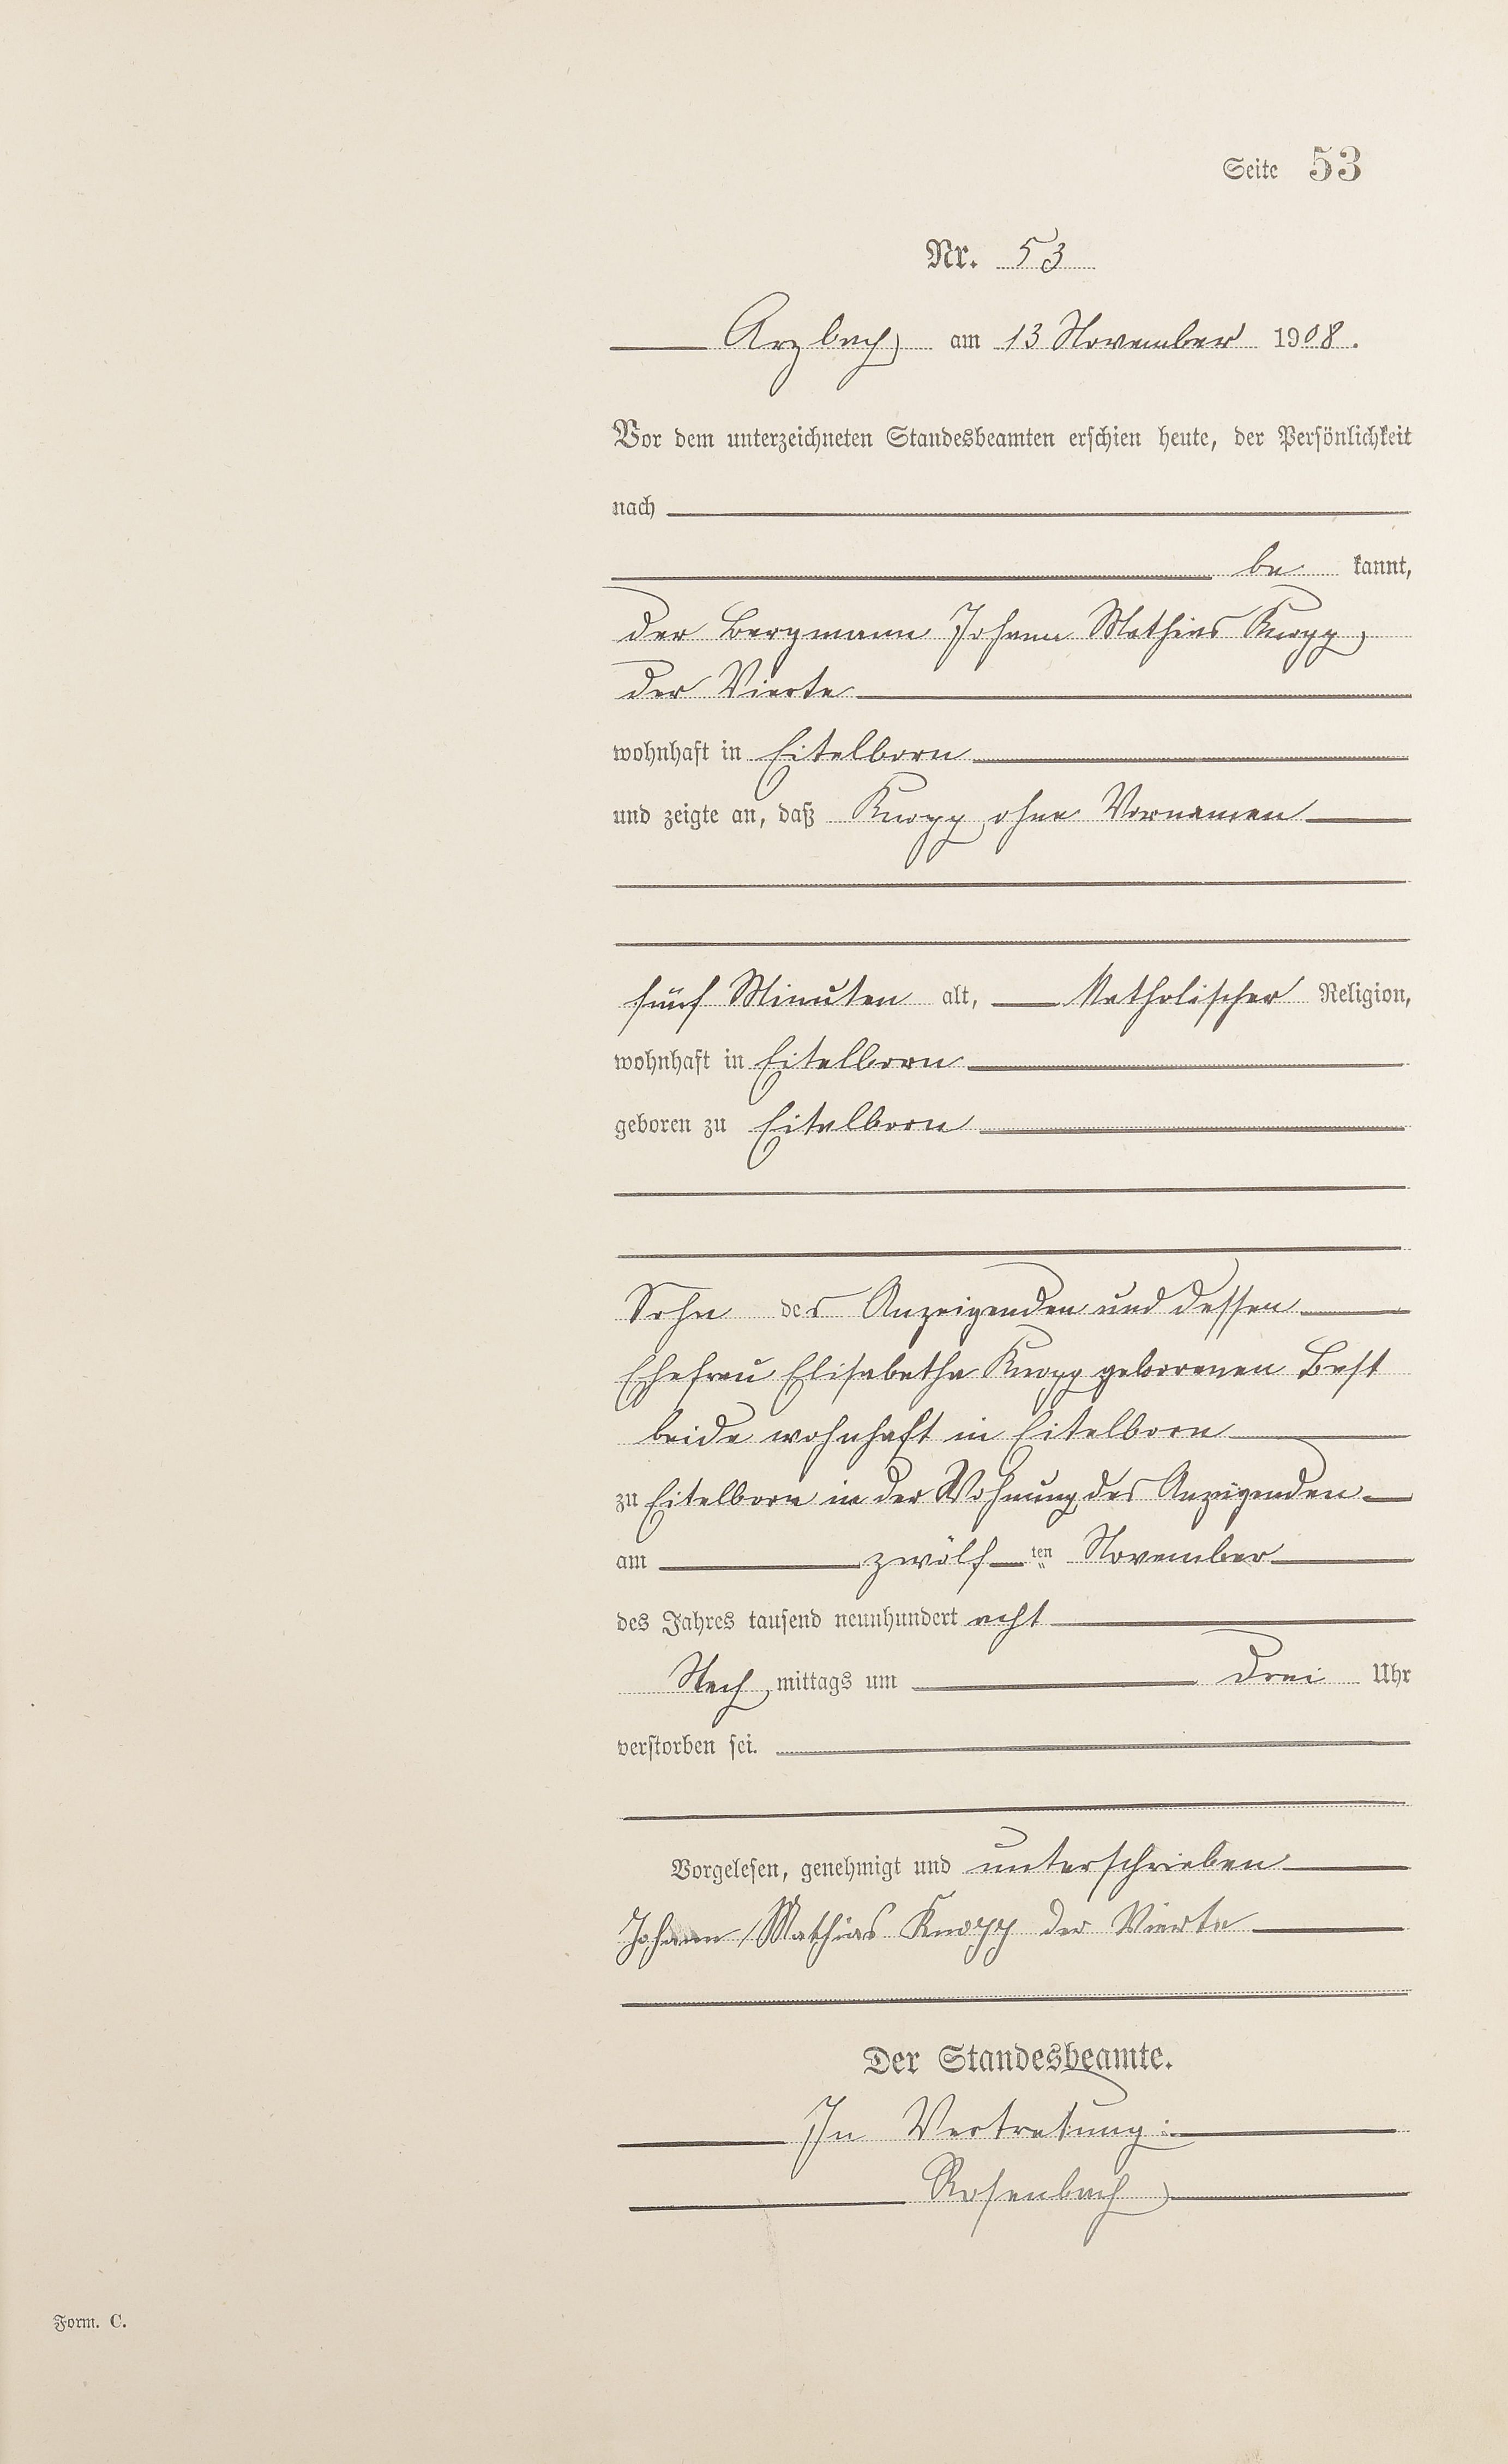 Seite 53
Nr. 53
Arzbach am 13 November 1908.
Vor dem unterzeichneten Standesbeamten erschien heute, der Persönlichkeit
nach
be kannt,
der Bergmann Johann Mathias Knopp,
der Vierte
wohnhaft in Eitelborn
und zeigte an, daß Knopp, ohne Vornamen
fünf Minuten alt, Katholischer Religion,
wohnhaft in Eitelborn
geboren zu Eitelborn
Sohn des Anzeigenden und dessen
Ehefrau Elisabetha Knopp geborenen Best
beide wohnhaft in Eitelborn
zu Eitelborn in der Wohnung des Anzeigenden
am zwölf ten November
des Jahres tausend neunhundert acht
Nach mittags um drei Uhr
verstorben sei.
Vorgelesen, genehmigt und unterschrieben
Johann Mathias Knopp der Vierte
Der Standesbeamte.
In Vertretung:
Rosenbach
Form. C.